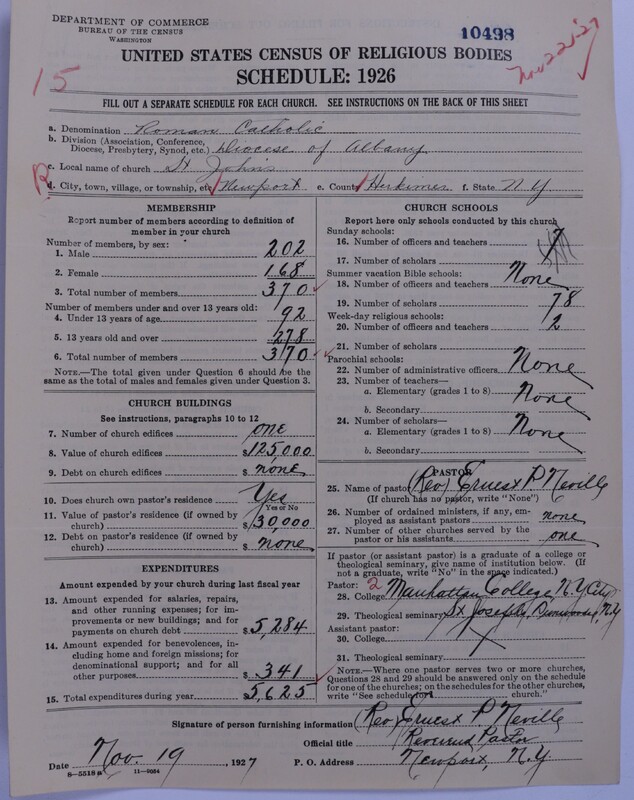 DEPARTMENT OF COMMERCE
BUREAU OF THE CENSUS
WASHINGTON
10498
Nov 22 '27
15
UNITED STATES CENSUS OF RELIGIOUS BODIES
SCHEDULE: 1926
FILL OUT A SEPARATE SCHEDULE FOR EACH CHURCH. SEE INSTRUCTIONS ON THE BACK OF THIS SHEET
a. Denomination Roman Catholic
b. Division (Association, Conference, Diocese, Presbytery, Synod, etc.) Diocese of Albany
c. Local name of church St Johns
d. City, town, village, or township, etc. Newport e. County Herkimer f. State N.Y
MEMBERSHIP
Report number of members according to definition of
member in your church
Number of members, by sex:
1. Male 202
2. Female 168
3. Total number of members 370
Number of members under and over 13 years old:
4. Under 13 years of age 92
5. 13 years old and over 278
6. Total number of members 370
NOTE.—The total given under Question 6 should be the
same as the total of males and females given under Question 3.
CHURCH BUILDINGS
See instructions, paragraphs 10 to 12
7. Number of church edifices one
8. Value of church edifices $125,000
9. Debt on church edifices $none
10. Does church own pastor's residence Yes
Yes or No
11. Value of pastor's residence (if owned by
church) $30,000
12. Debt on pastor's residence (if owned by
church) $none
EXPENDITURES
Amount expended by your church during last fiscal year
13. Amount expended for salaries, repairs,
and other running expenses; for im-
provements or new buildings; and for
payments on church debt $5,284
14. Amount expended for benevolences, in-
cluding home and foreign missions; for
denominational support; and for all
other purposes $341
15. Total expenditures during year $5,625
CHURCH SCHOOLS
Report here only schools conducted by this church
Sunday schools:
16. Number of officers and teachers 7
17. Number of scholars
Summer vacation Bible schools:
18. Number of officers and teachers None
19. Number of scholars 78
Week-day religious schools:
20. Number of officers and teachers 2
21. Number of scholars
Parochial schools:
22. Number of administrative officers None
23. Number of teachers—
a. Elementary (grades 1 to 8) None
b. Secondary
24. Number of scholars—
a. Elementary (grades 1 to 8) None
b. Secondary
PASTOR
25. Name of pastor (Rev) Ernest P. Neville
(If church has no pastor, write "None")
26. Number of ordained ministers, if any, em-
ployed as assistant pastors none
27. Number of other churches served by the
pastor or his assistants one
If pastor (or assistant pastor) is a graduate of a college or
theological seminary, give name of institution below. (If
not a graduate, write "No" in the space indicated.)
Pastor: 2
28. College Manhattan College, N.Y City
29. Theological seminary St Josephs, N.Y
Assistant pastor:
30. College
31. Theological seminary
NOTE.—Where one pastor serves two or more churches,
Questions 28 and 29 should be answered only on the schedule
for one of the churches; on the schedules for the other churches,
write "See schedule for church."
Signature of person furnishing information (Rev) Ernest P. Neville
Official title Reverend Pastor
Date Nov. 19, 1927 P. O. Address Newport, N.Y
8—5518a 11—9064